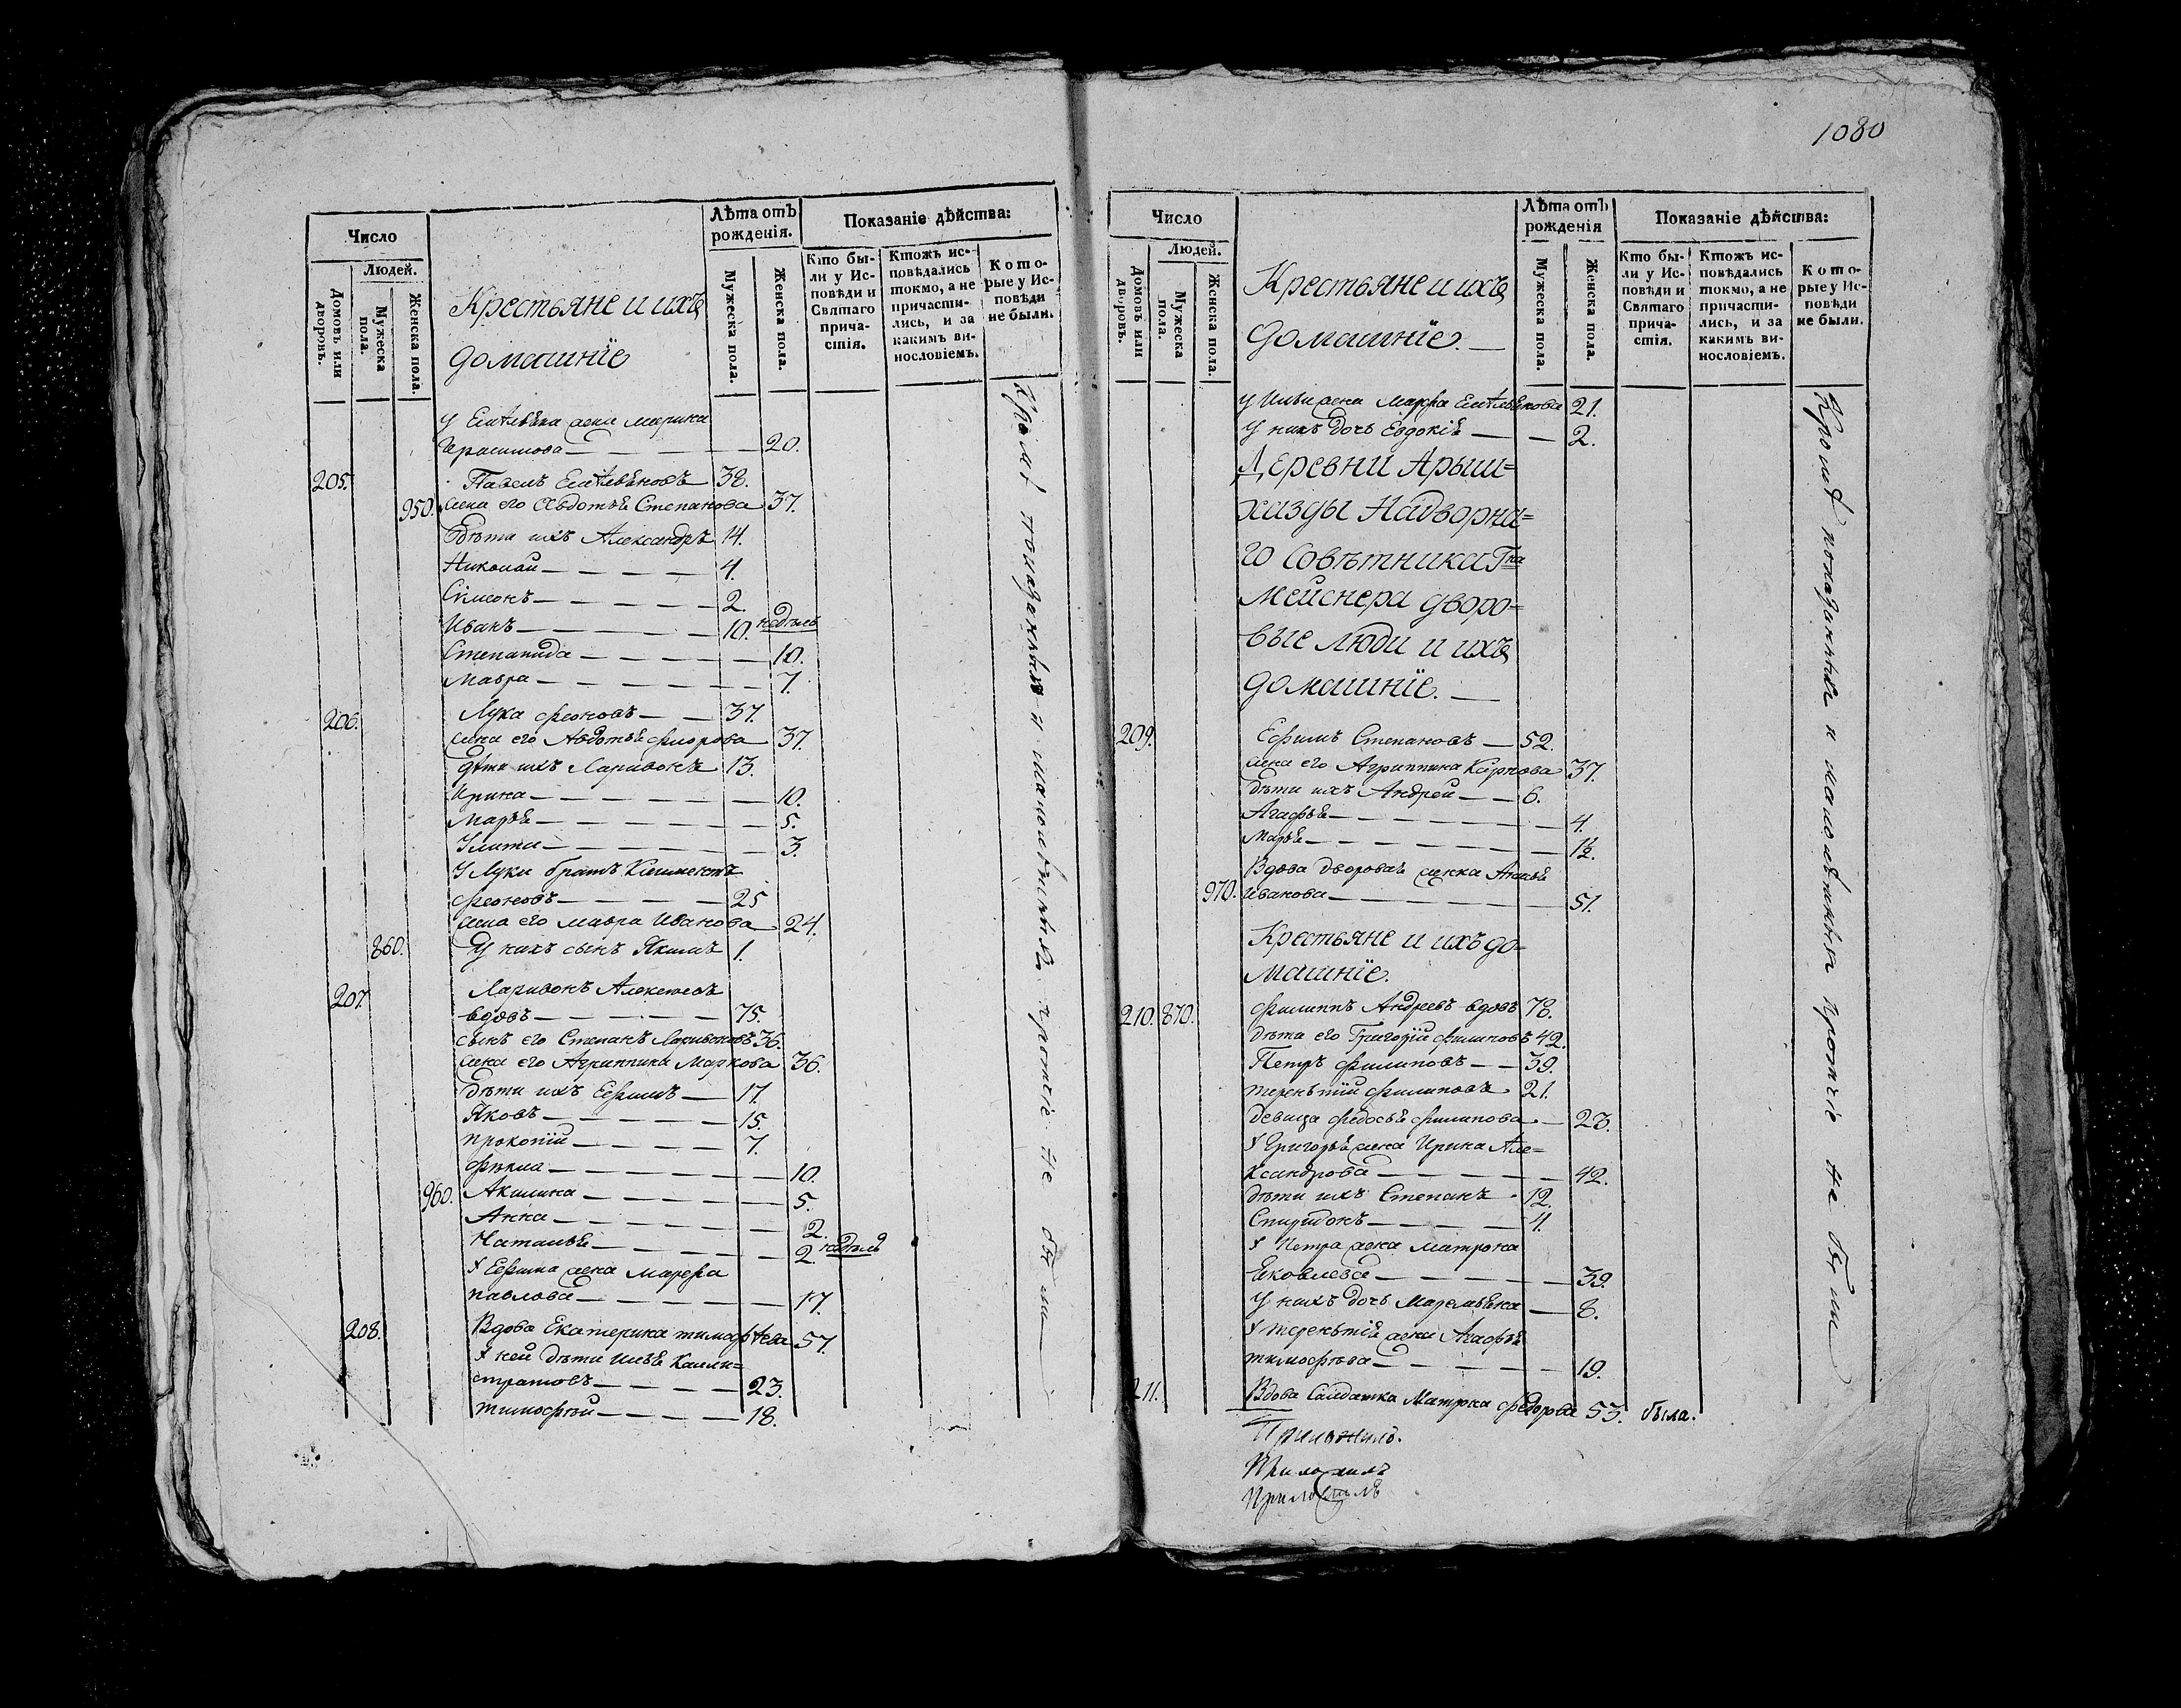 1080
Число
Людей.
Домовъ или дворовъ.
Мужеска пола.
Женска пола.
Крестьяне и ихъ
домашніе
Лѣта отъ рожденія.
Мужеска пола.
Женска пола.
Показаніе дѣйства:
Кто были у Исповѣди и Святаго причастія.
Ктожъ исповѣдались токмо, а не причастились, и за какимъ винословіемъ.
Которые у Исповѣди не были.
У Емѣльяна жена Марина
Ирасимова 20.
205. Павелъ Емѣльяновъ 38.
950. жена его Авдотья Степанова 37.
дѣти ихъ Александръ 14.
Николай 4.
Симеонъ 2.
Иванъ 10. недѣль
Степанида 10.
Мавра 7.
206. Лука Феоновъ 37.
жена его Авдотья 37.
дѣти ихъ Ларивонъ 13.
Ирина 10.
Марья 5.
Улита 3.
У Луки братъ Климентъ
Феоновъ 25
жена его Мавра Иванова 24.
860. У нихъ сынъ Якимъ 1.
207. Ларивонъ Алексеевъ
вдовъ 75.
сынъ его Степанъ Ларивоновъ 36.
жена его Агриппина Маркова 36.
дѣти ихъ Ефимъ 17.
Яковъ 15.
Прокопій 7.
Фекла 10.
960. Акилина 5.
Анна 2.
Наталья 2. недѣль
У Ефима жена Марфа
Павлова 17.
208. Вдова Екатерина Тимофѣева 57.
У ней дѣти Илья Калли=
стратовъ 23.
Тимофѣй 18.
Кромѣ показанныхъ и малолѣтныхъ протчіе не были
Число
Людей.
Домовъ или дворовъ.
Мужеска пола.
Женска пола.
Крестьяне и ихъ
домашніе.
Лѣта отъ рожденія
Мужеска пола.
Женска пола.
Показаніе дѣйства:
Кто были у Исповѣди и Святаго причастія.
Ктожъ исповѣдались токмо, а не причастились, и за какимъ винословіемъ.
Которые у Исповѣди не были.
У Ильи жена Марфа Емѣльянова 21.
У нихъ дочь Евдокія 2.
Деревни Арыш=
хазды Надворна=
го Совѣтника Гна
Мейснера дворо=
вые люди и ихъ
домашніе.
209. Ефимъ Степановъ 52.
жена его Агриппина Карпова 37.
дѣти ихъ Андрей 6.
Агафья 4.
Марья 1½.
Вдова дворовая женка
970. Иванова 51.
Крестьяне и ихъ до=
машніе.
210. 870. Филиппъ Андреевъ вдовъ 78.
дѣти его Григорій Филиповъ 42.
Петръ Филиповъ 39.
Терентій Филиповъ 21.
Девица Федосья Филипова 23.
У Григорья жена Ирина Але=
ксандрова 42.
дѣти ихъ Степанъ 12.
Спиридонъ 4.
У Петра жена Матрона
Яковлева 39.
У нихъ дочь Маремьяна 8.
У Терентія жена Агафья
Тимофѣева 19.
211. Вдова Салдатка Матрна Федорова 53. была.
Кромѣ показанныхъ и малолѣтныхъ протчіе не были
Приложилъ.
Приложилъ
Приложилъ